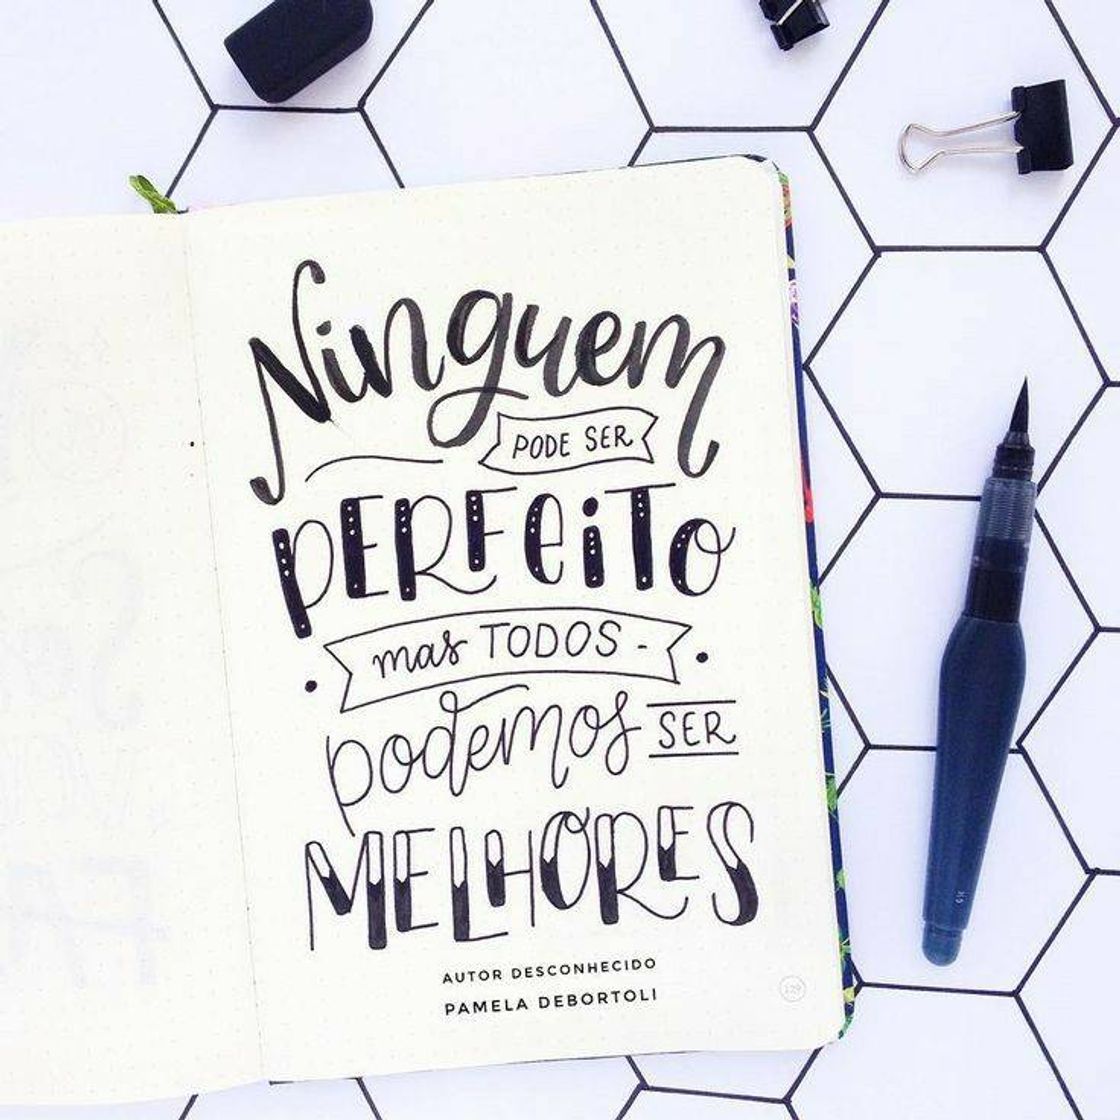 Ninguem
PODE SER
PERFEITO
mas TODOS -
podemos SER
MELHORES
AUTOR DESCONHECIDO
PAMELA DEBORTOLI
129